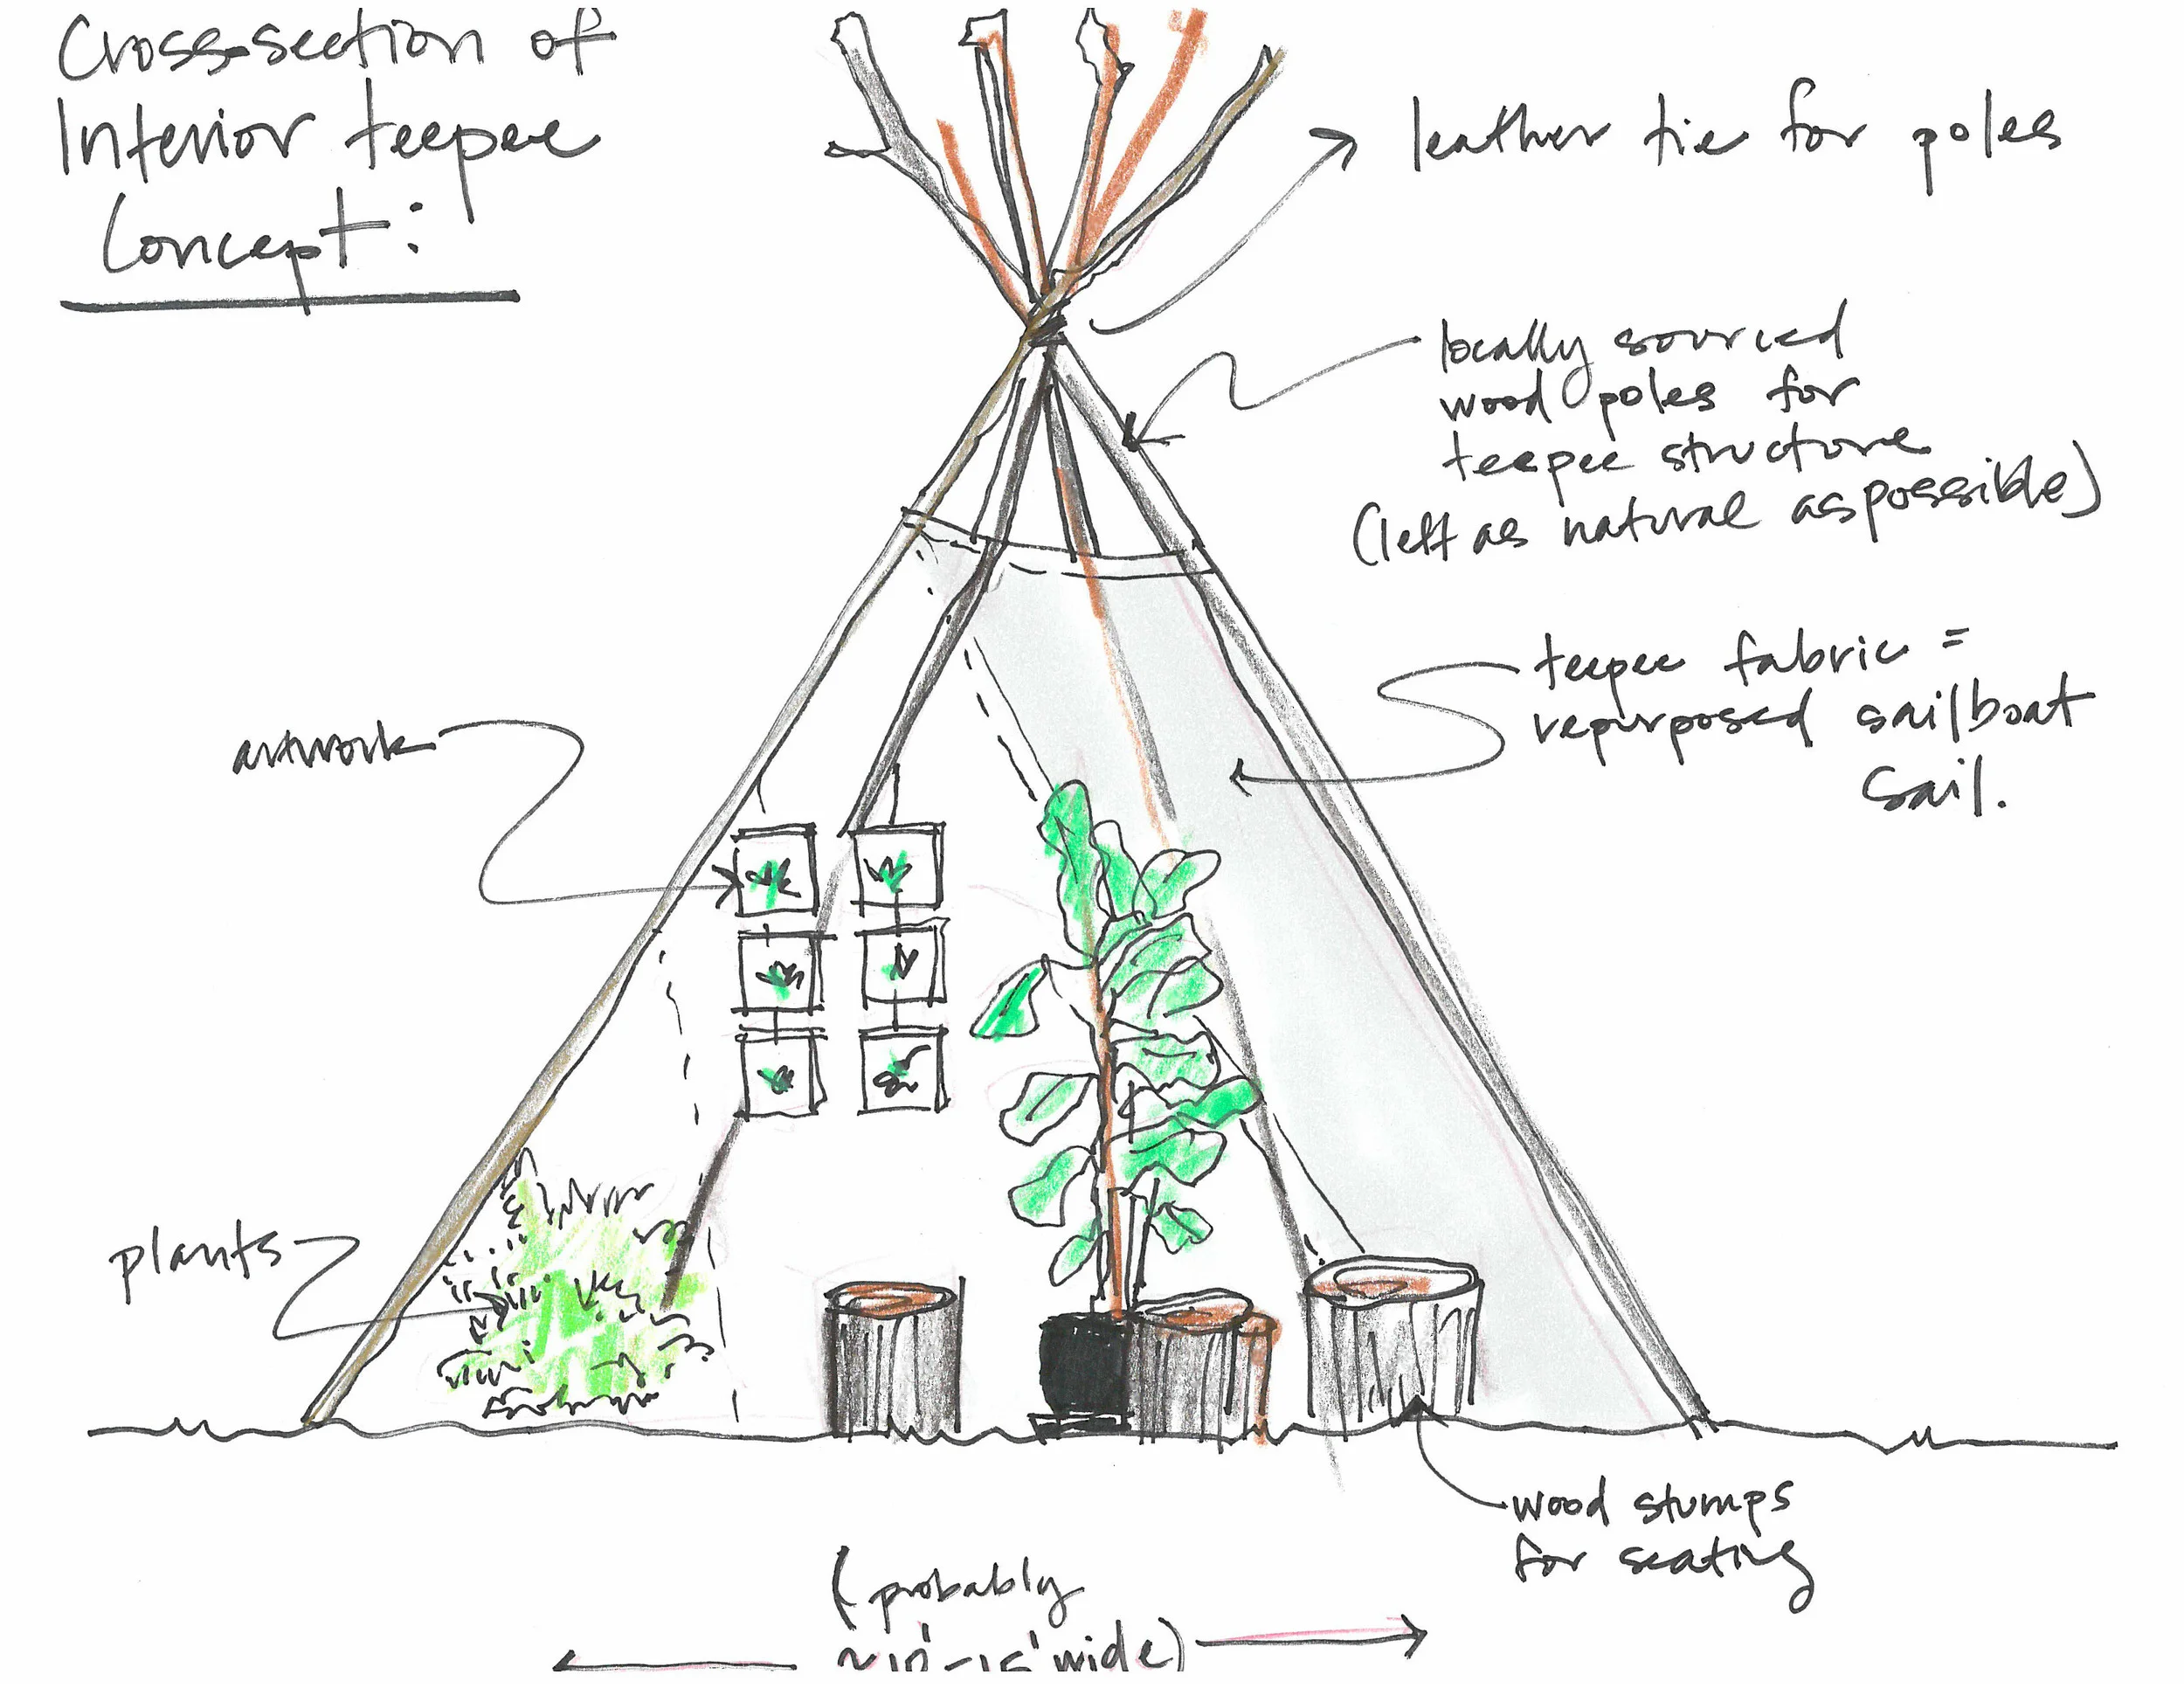 Cross-section of
Interior teepee
Concept:
leather tie for poles
locally sourced
wood poles for
teepee structure
(left as natural as possible)
teepee fabric =
repurposed sailboat
sail.
artwork
plants
wood stumps
for seating
(probably
~10'-15' wide)